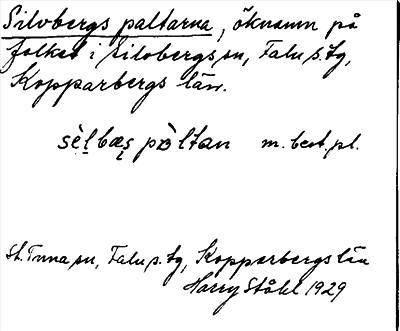 Silvbergs paltarna, öknamn på
folket i Silvbergs sn, Falu s. tg,
Kopparbergs län.
sèl̥bæs̨ pòltan m. best. pl.
St. Tuna sn, Falu s. tg, Kopparbergs län
Harry Ståhl 1929